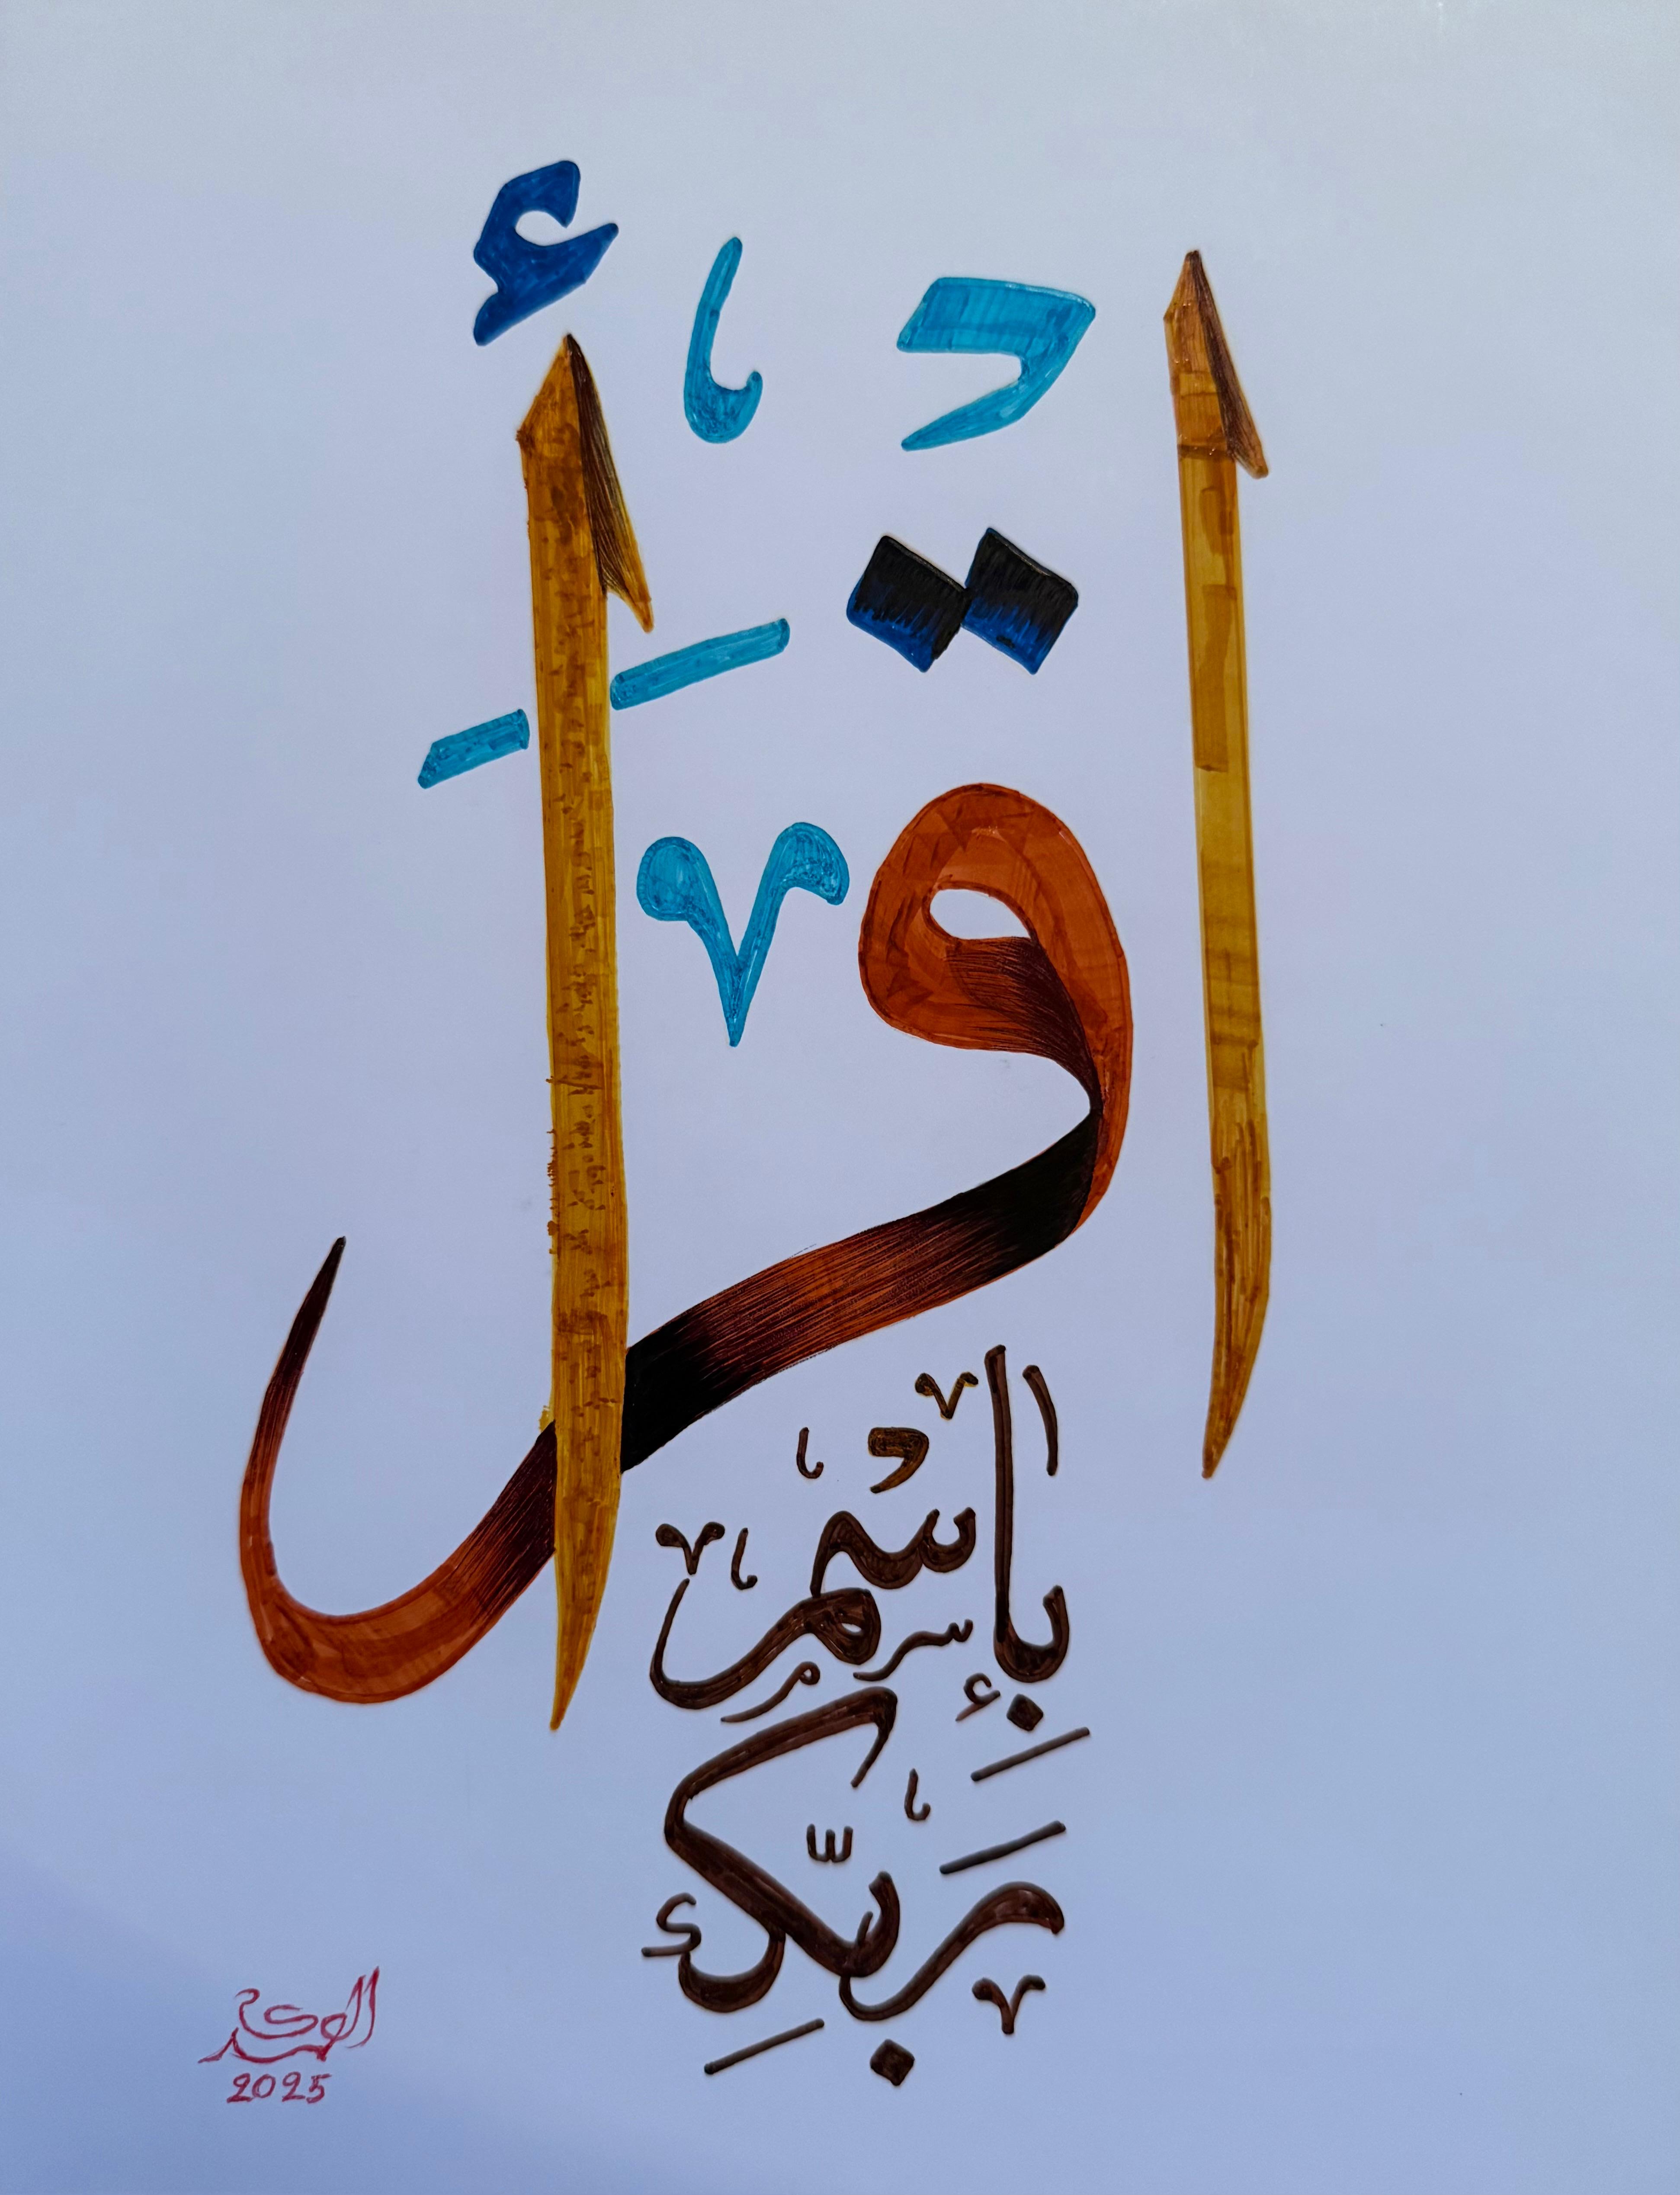 اقْرَأ
بِإسْم
رَبِّك
2025